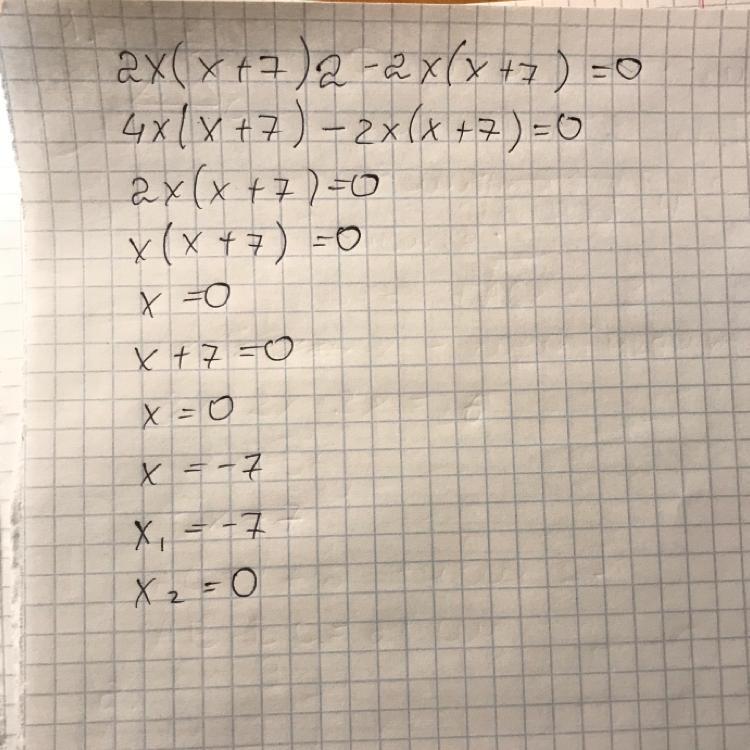 2x(x+7)2-2x(x+7)=0
4x(x+7)-2x(x+7)=0
2x(x+7)=0
x(x+7)=0
x=0
x+7=0
x=0
x=-7
x₁=-7
x₂=0